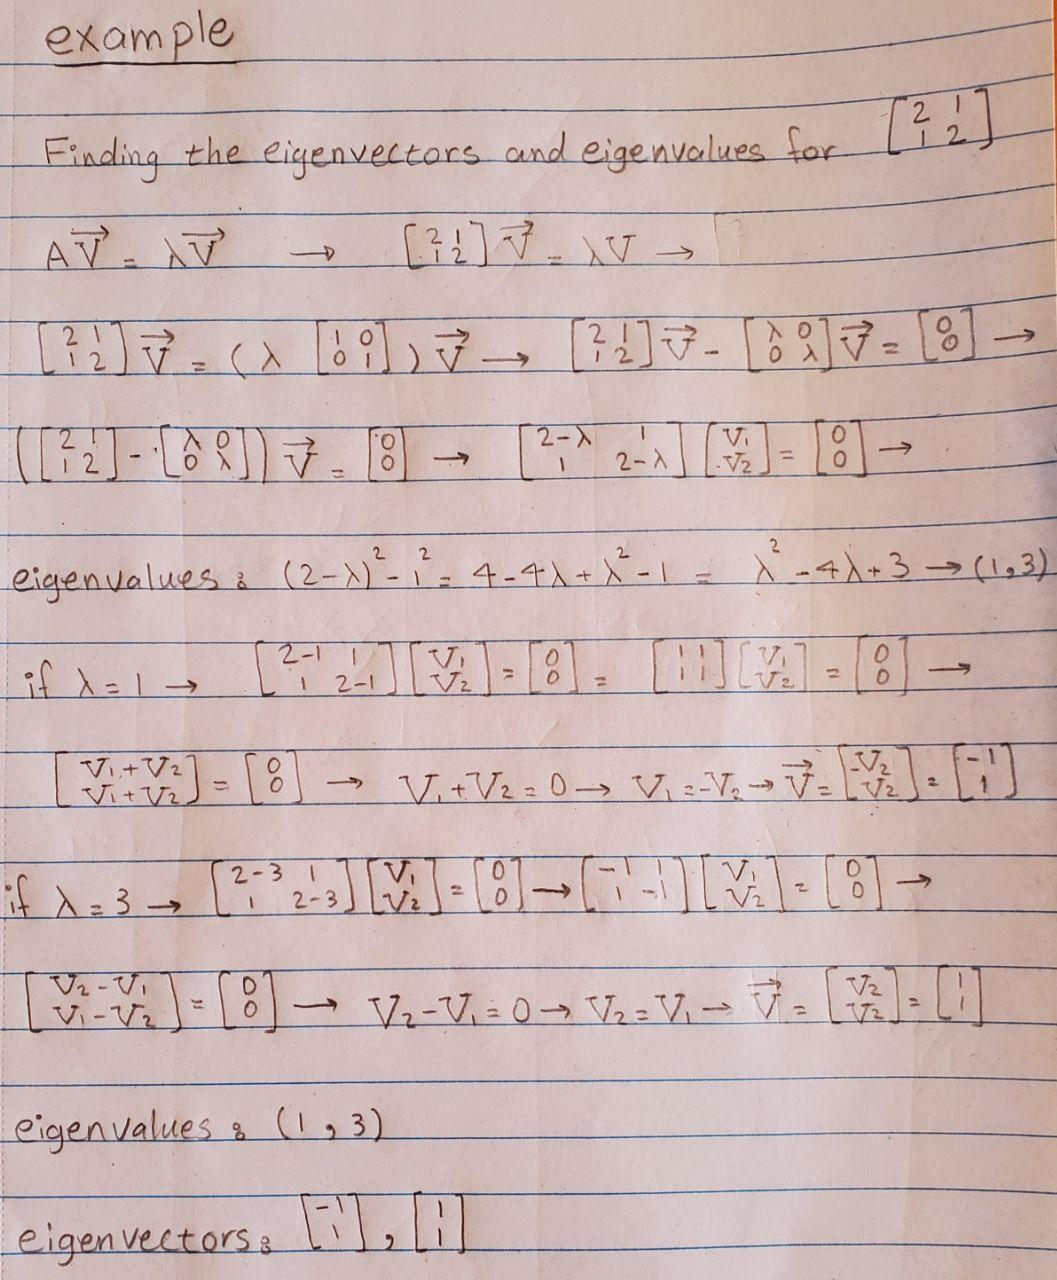 example
Finding the eigenvectors and eigenvalues for [2 1; 1 2]
AV⃗ = λV⃗ → [2 1; 1 2] V⃗ = λV →
[2 1; 1 2] V⃗ = (λ [1 0; 0 1]) V⃗ → [2 1; 1 2] V⃗ - [λ 0; 0 λ] V⃗ = [0; 0] →
([2 1; 1 2] - [λ 0; 0 λ]) V⃗ = [0; 0] → [2-λ 1; 1 2-λ] [V₁; V₂] = [0; 0] →
eigenvalues : (2-λ)² - 1² = 4-4λ+λ²-1 = λ²-4λ+3 → (1,3)
if λ=1 → [2-1 1; 1 2-1] [V₁; V₂] = [0; 0] = [1 1; 1 1] [V₁; V₂] = [0; 0] →
[V₁+V₂; V₁+V₂] = [0; 0] → V₁+V₂=0 → V₁=-V₂ → V⃗ = [-V₂; V₂] = [-1; 1]
if λ=3 → [2-3 1; 1 2-3] [V₁; V₂] = [0; 0] → [-1 1; 1 -1] [V₁; V₂] = [0; 0] →
[V₂-V₁; V₁-V₂] = [0; 0] → V₂-V₁=0 → V₂=V₁ → V⃗ = [V₂; V₂] = [1; 1]
eigenvalues : (1,3)
eigenvectors: [-1; 1], [1; 1]